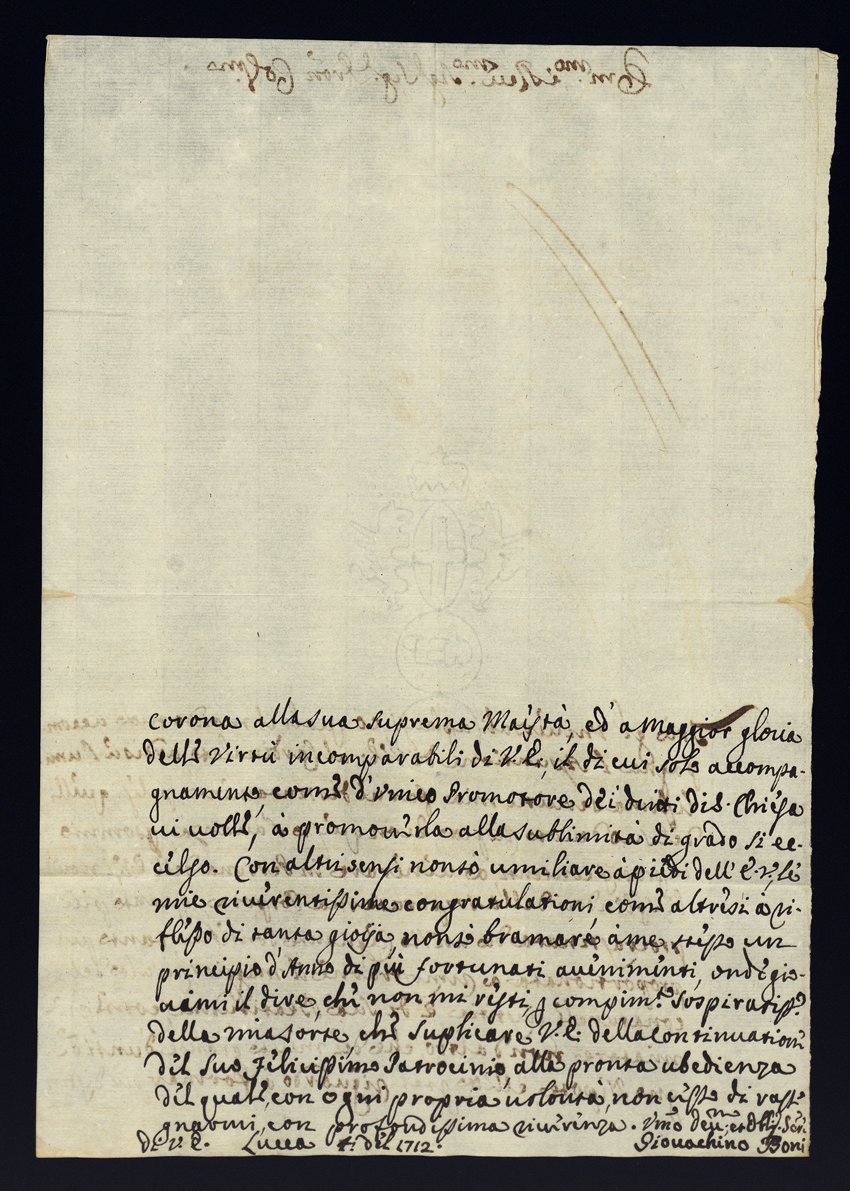 corona alla sua suprema Maestà, ed' a maggior gloria
delle virtù incomparabili di V. E., il di cui solo accompa-
gnamento, come d'unico Promotore dei diritti di S. Chiesa
vi volle, à promoverla alla sublimità di grado si ec-
celso. Con altri sensi non sò umiliare à piedi dell' E. V. le
mie riverentissime congratulationi come altresi à ri-
flesso di tanta gioia, non sò bramare à me stesso un
principio d'Anno di più fortunati avenimenti, onde gio-
vami il dire, che non mi resti, compim.to sospiratiss.o
della mia sorte che suplicare V. E. della continuatione
del suo felicissimo Patrocinio, alla pronta ubedienza
del quale, con ogni propria volontà, non cesso di rasse-
gnarmi, con profondissima riverenza.
di V. E. Lucca del 1712. Giovachino Boni